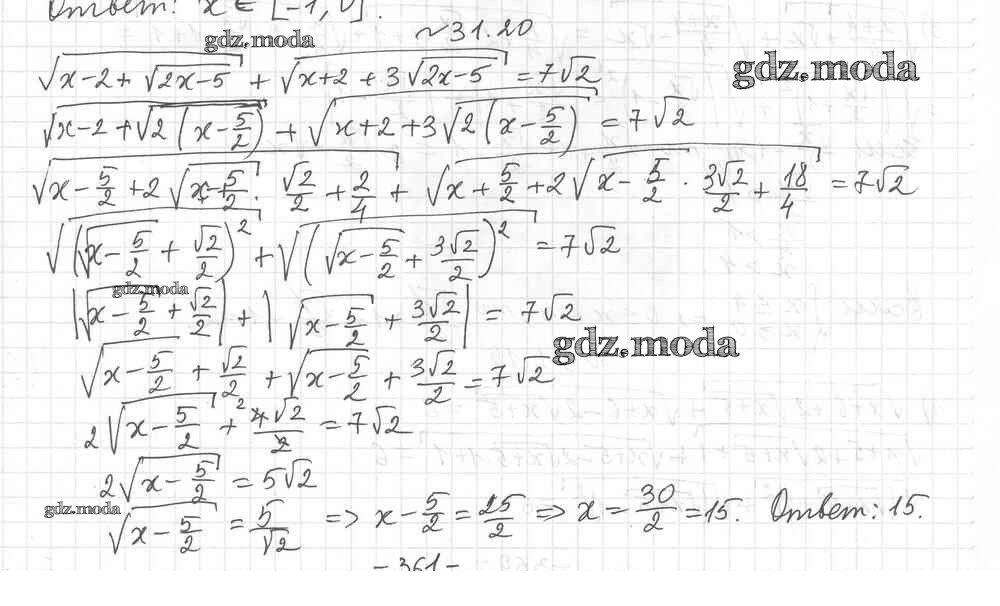 Ответ: x ∈ [-1, 0].
gdz.moda
№31.20
√(x-2+√(2x-5)) + √(x+2+3√(2x-5)) = 7√2
gdz.moda
√(x-2+√(2(x-5/2))) + √(x+2+3√(2(x-5/2))) = 7√2
√(x-5/2+2√(x-5/2)·√2/2+2/4) + √(x+5/2+2√(x-5/2)·3√2/2+18/4) = 7√2
√((√(x-5/2)+√2/2)²) + √((√(x-5/2)+3√2/2)²) = 7√2
gdz.moda
|√(x-5/2)+√2/2| + |√(x-5/2)+3√2/2| = 7√2
gdz.moda
√(x-5/2)+√2/2+√(x-5/2)+3√2/2 = 7√2
2√(x-5/2) + ²4√2/2 = 7√2
2√(x-5/2) = 5√2
gdz.moda
√(x-5/2) = 5/√2 => x-5/2 = 25/2 => x = 30/2 = 15. Ответ: 15.
- 361 -